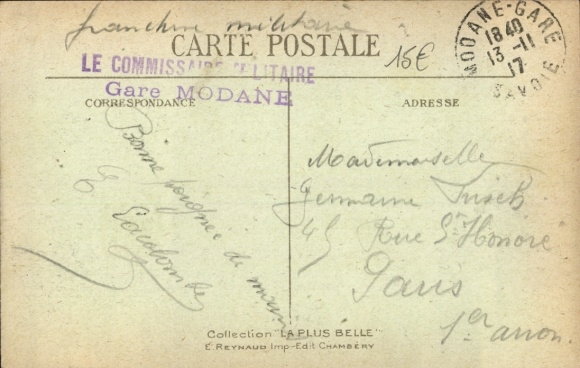 franchise militaire
CARTE POSTALE
15€
MODANE-GARE
1840
13-11
17
SAVOIE
LE COMMISSAIRE MILITAIRE
Gare MODANE
CORRESPONDANCE
ADRESSE
Bonne poignée de main
E
Mademoiselle
Germaine
45 Rue St Honoré
Paris
1er arron.
Collection "LA PLUS BELLE"
E. REYNAUD Imp-Edit CHAMBÉRY